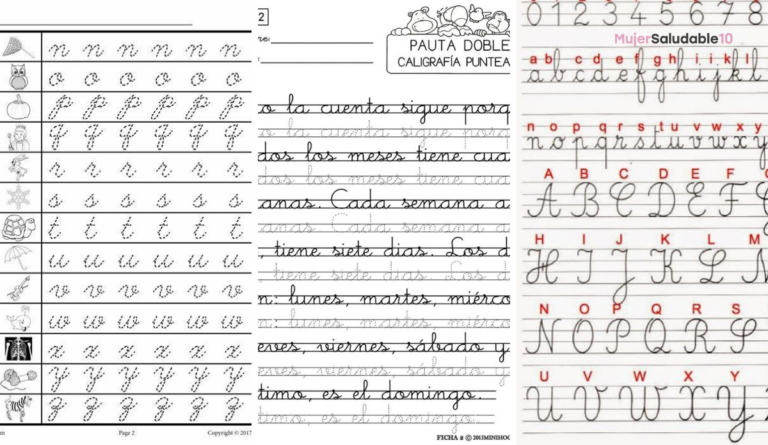 n n n n n n
o o o o o o
p p p p p p
q q q q q q
r r r r r r
s s s s s s
t t t t t t
u u u u u u
v v v v v v
w w w w w w
x x x x x x
y y y y y y
z z z z z z
Page 2 Copyright © 2017
2
PAUTA DOBLE
CALIGRAFÍA PUNTEA
o la cuenta sigue porq
o la cuenta sigue porq
dos los meses tiene cua
dos los meses tiene cua
anas. Cada semana a
anas. Cada semana a
, tiene siete dias. Los d
, tiene siete dias. Los d
n: lunes, martes, miérco
n: lunes, martes, miérco
eves, viernes, sábado y
eves, viernes, sábado y
timo, es el domingo.
timo, es el domingo.
FICHA 2 ©2013MINIHOG
0 1 2 3 4 5 6 7 8
MujerSaludable10
a b c d e f g h i j k l
a b c d e f g h i j k l
n o p q r s t u v w x y
n o p q r s t u v w x y
A B C D E F
A B C D E F
H I J K L M
H I J K L M
N O P Q R S
N O P Q R S
U V W X Y
U V W X Y